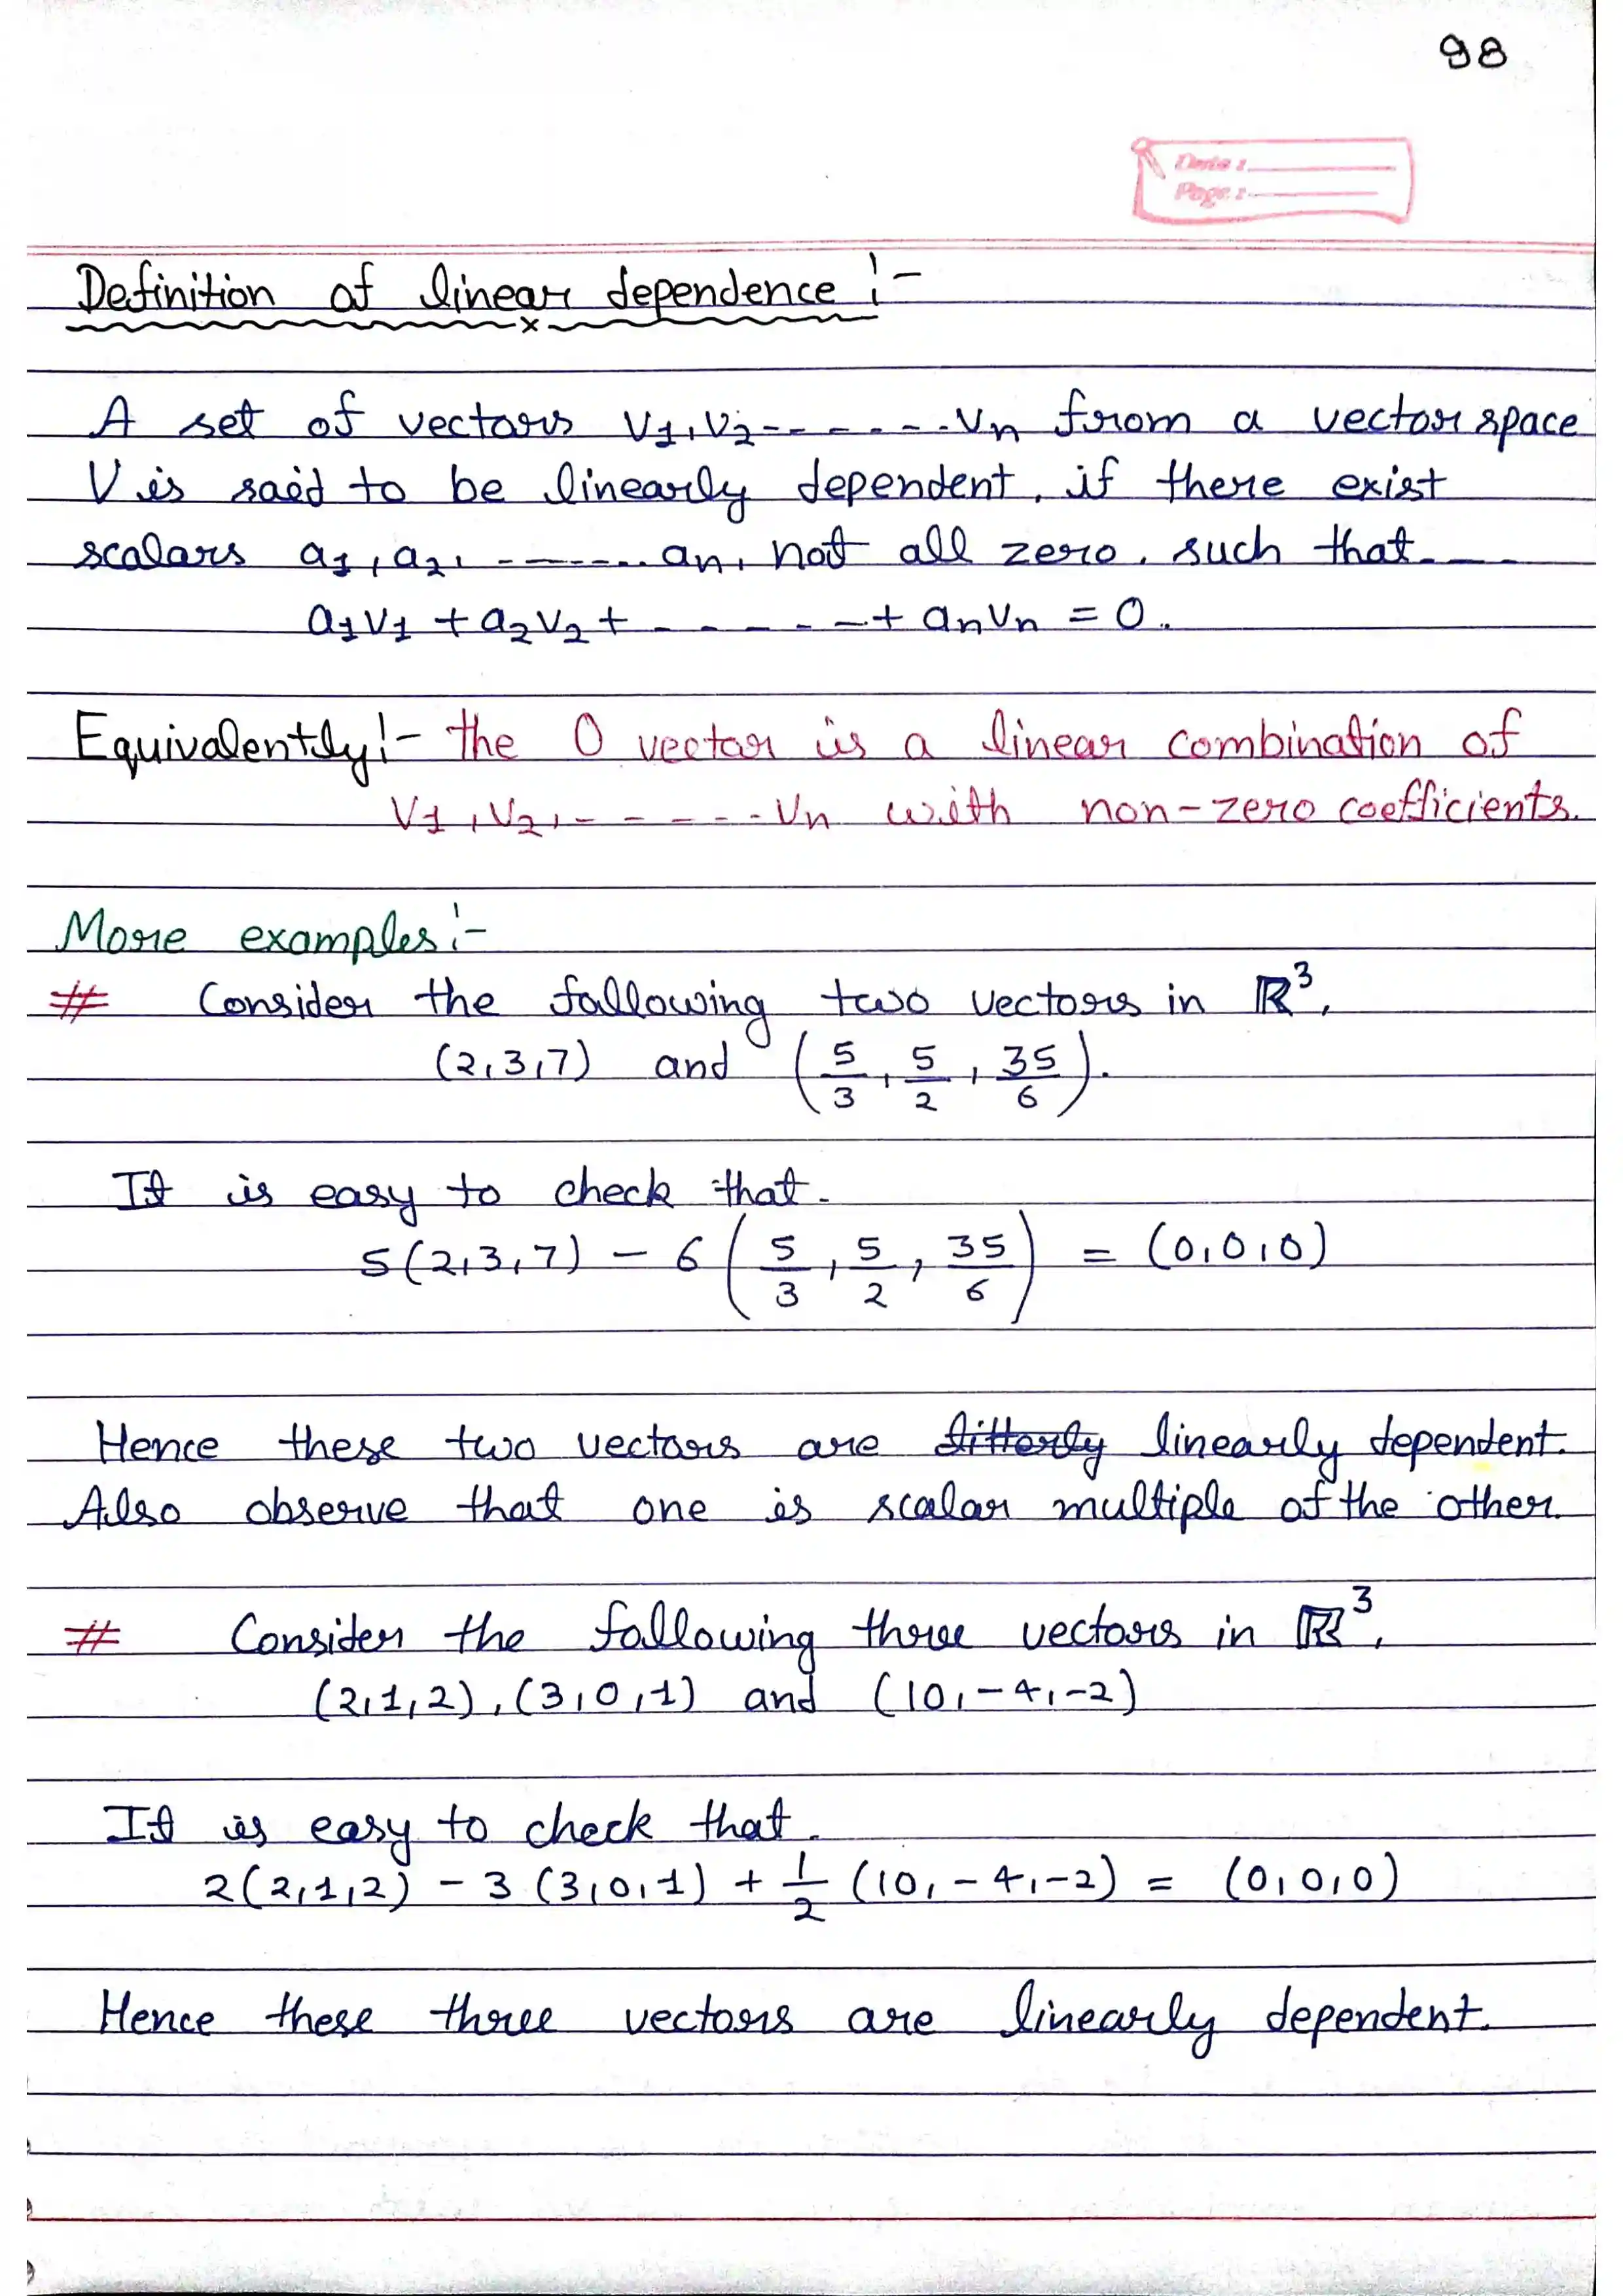 98
Date :
Page :
Definition of linear dependence :-
A set of vectors v1, v2 ------- vn from a vector space
V is said to be linearly dependent, if there exist
scalars a1, a2, ------- an, not all zero, such that----
a1v1 + a2v2 + ------ + anvn = 0.
Equivalently :- the 0 vector is a linear combination of
v1, v2, ------ vn with non-zero coefficients.
More examples :-
# Consider the following two vectors in ℝ³,
(2,3,7) and (5/3, 5/2, 35/6).
It is easy to check that.
5(2,3,7) - 6 (5/3, 5/2, 35/6) = (0,0,0)
Hence these two vectors are linearly dependent.
Also observe that one is scalar multiple of the other.
# Consider the following three vectors in ℝ³,
(2,1,2), (3,0,1) and (10,-4,-2)
It is easy to check that.
2(2,1,2) - 3(3,0,1) + 1/2 (10,-4,-2) = (0,0,0)
Hence these three vectors are linearly dependent.